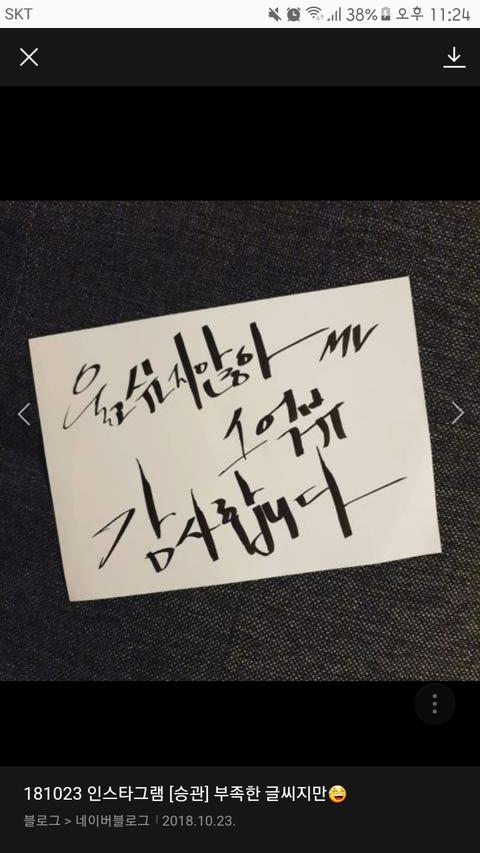 SKT 38% 오후 11:24
울고 싶지 않아 MV
1억뷰
감사합니다
181023 인스타그램 [승관] 부족한 글씨지만😅
블로그 > 네이버블로그 | 2018.10.23.